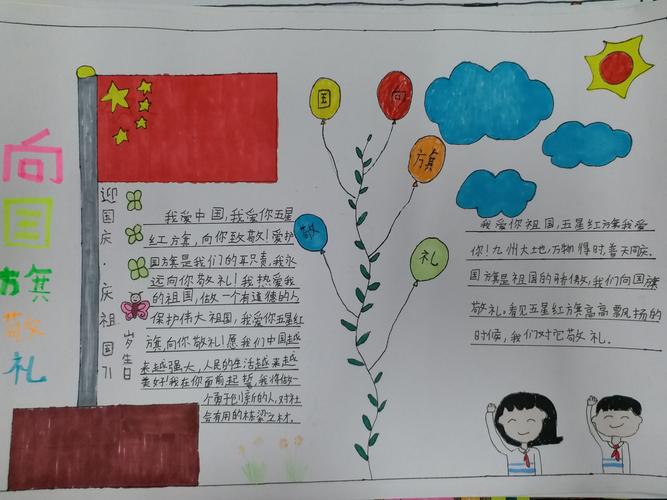 向
国
旗
敬
礼
迎国庆·庆祖国71
岁生日
我爱中国，我爱你五星
红旗，向你致敬！爱护
国旗是我们的职责，我永
远向你敬礼！我热爱我
的祖国，做一个有道德的人
保护伟大祖国，我爱你五星红
旗，向你敬礼！愿我们中国越
来越强大，人民的生活越来越
美好！我在你面前起誓，我将做一
个勇于创新的人，对社
会有用的栋梁之材。
国
向
旗
敬
礼
我爱你祖国，五星红旗我爱
你！九州大地，万物得时，普天同庆。
国旗是祖国的骄傲，我们向国旗
敬礼。看见五星红旗高高飘扬的
时候，我们对它敬礼。